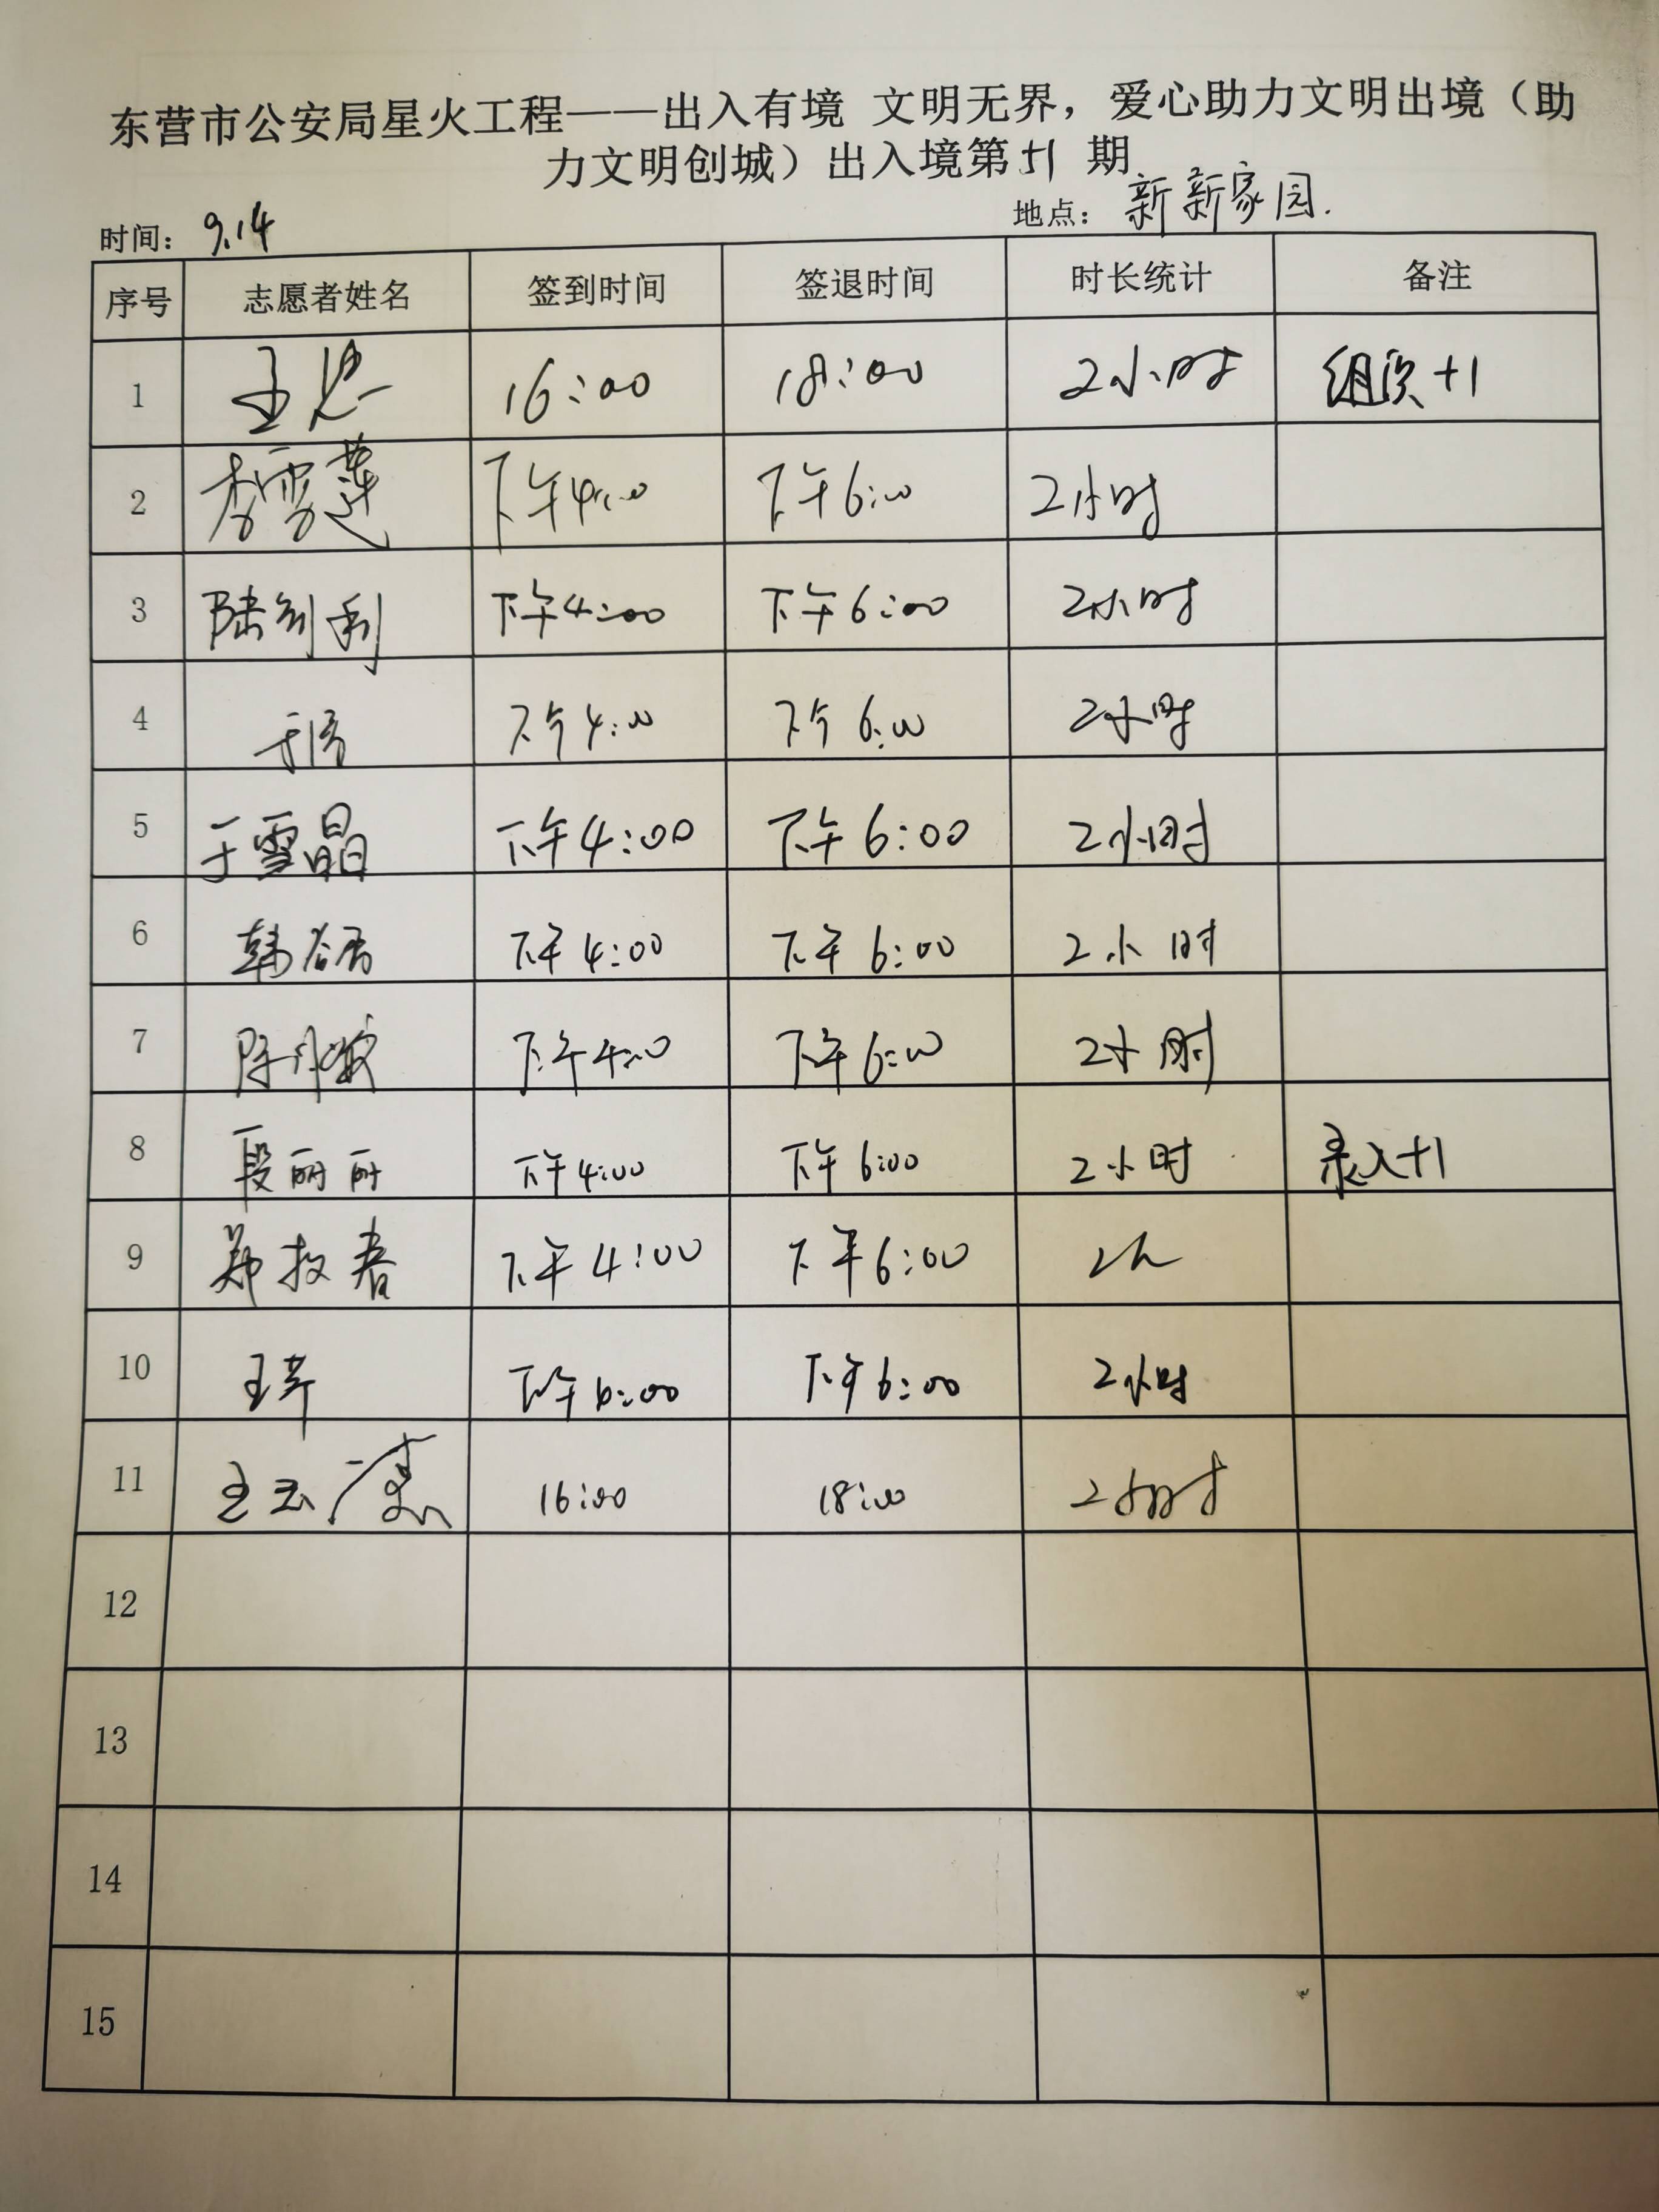 东营市公安局星火工程——出入有境 文明无界，爱心助力文明出境（助
力文明创城）出入境第51期
时间：9.14 地点：新新家园.
序号 志愿者姓名 签到时间 签退时间 时长统计 备注
1 16:00 18:00 2小时 组织+1
2 李雪莲 下午4:00 下午6:00 2小时
3 下午4:00 下午6:00 2小时
4 于倩 下午4:00 下午6:00 2小时
5 于雪晶 下午4:00 下午6:00 2小时
6 下午4:00 下午6:00 2小时
7 下午4:00 下午6:00 2小时
8 段丽丽 下午4:00 下午6:00 2小时 录入+1
9 下午4:00 下午6:00 2h
10 下午6:00 下午6:00 2小时
11 16:00 18:00 2小时
12
13
14
15